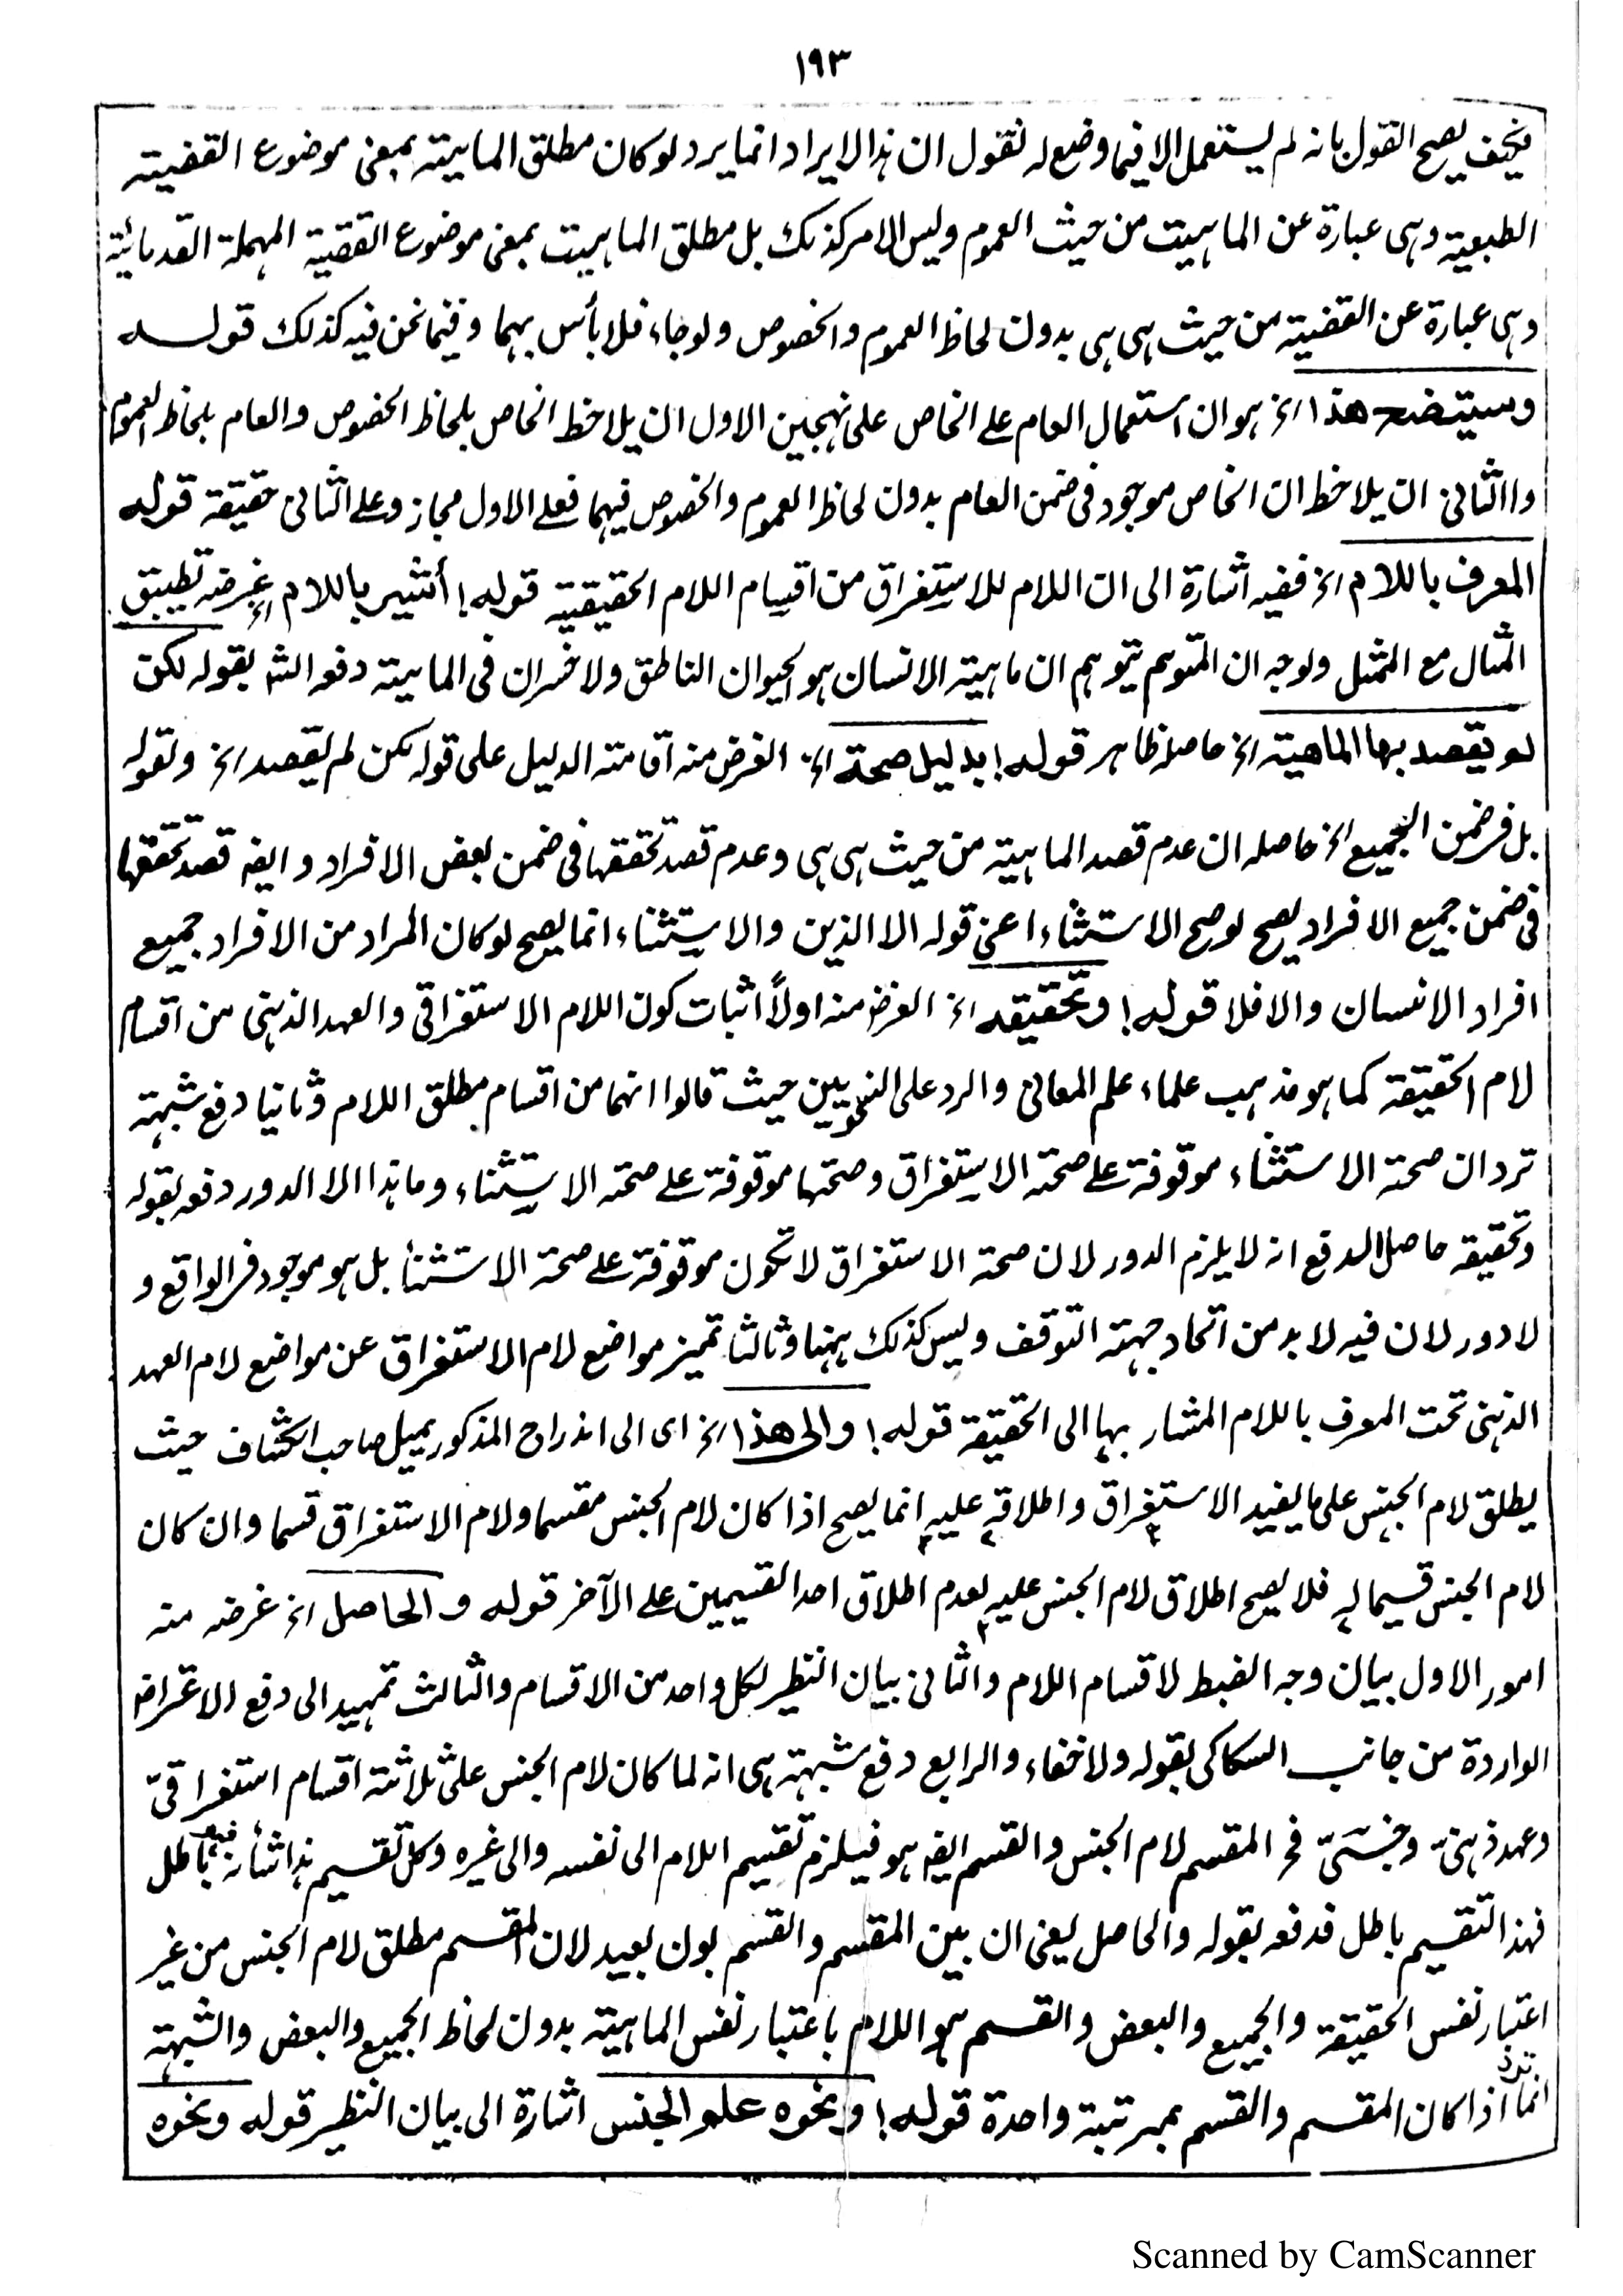 ١٩٣
فكيف يصح القول بانه لم يستعمل الا فيما وضع له نقول ان هذا الايراد انما يرد لو كان مطلق الماهية بمعنى موضوع القضية
الطبعية وهى عبارة عن الماهيت من حيث العموم وليس الامر كذلك بل مطلق الماهيت بمعنى موضوع القضية المهملة القدمائية
وهى عبارة عن القضية من حيث هى هى بدون لحاظ العموم والخصوص ولوجاء فلا بأس بهما وفيما نحن فيه كذلك قوله
وسيتضح هذا الخ هو ان استعمال العام على الخاص على نهجين الاول ان يلاحظ الخاص بلحاظ الخصوص والعام بلحاظ العموم
واالثانى ان يلاحظ ان الخاص موجود فى ضمن العام بدون لحاظ العموم والخصوص فيهما فعلى الاول مجاز وعلى الثانى حقيقة قوله
المعرف باللام الخ ففيه اشارة الى ان اللام للاستغراق من اقسام اللام الحقيقية قوله! أشير باللام الخ غرضه تطبيق
المثال مع الممثل ولوجه ان المتوهم يتوهم ان ماهية الانسان هو الحيوان الناطق ولا خسران فى الماهية دفعه الش بقوله لكن
لم يقصد بها الماهية الخ حاصله ظاهر قوله! بدليل صحة الخ الغرض منه اقامته الدليل على قوله لكن لم يقصد الخ ولقوله
بل فى ضمن الجميع الخ حاصله ان عدم قصد الماهية من حيث هى هى وعدم قصد تحققها فى ضمن بعض الافراد وايضه قصد تحققها
فى ضمن جميع الافراد يصح لو صح الاستثناء اعنى قوله الا الذين والاستثناء انما يصح لو كان المراد من الافراد جميع
افراد الانسان والا فلا قوله! وتحقيقه الخ الغرض منه اولاً اثبات كون اللام الاستغراقى والعهد الذهنى من اقسام
لام الحقيقة كما هو مذهب علماء علم المعانى والرد على النحويين حيث قالوا انهما من اقسام مطلق اللام وثانيا دفع شبهة
ترد ان صحة الاستثناء موقوفة على صحة الاستغراق وصحتها موقوفة على صحة الاستثناء وما هذا الا الدور دفعه بقوله
وتحقيقه حاصل الدفع انه لا يلزم الدور لان صحة الاستغراق لا تكون موقوفة على صحة الاستثنأ بل هو موجود فى الواقع و
لا دور لان فيه لا بد من اتحاد جهة التوقف وليس كذلك ههنا وثالثا تميز مواضع لام الاستغراق عن مواضع لام العهد
الذهنى تحت المعرف باللام المشار بها الى الحقيقة قوله! والى هذا الخ اى الى اندراج المذكور يميل صاحب الكشاف حيث
يطلق لام الجنس على ما يفيد الاستغراق واطلاقه عليه انما يصح اذا كان لام الجنس مقسما ولام الاستغراق قسما وان كان
لام الجنس قسيما له فلا يصح اطلاق لام الجنس عليه لعدم اطلاق احد القسيمين على الآخر قوله و الحاصل الخ غرضه منه
امور الاول بيان وجه الضبط لاقسام اللام والثانى بيان النظير لكل واحد من الاقسام والثالث تمهيد الى دفع الاعتراض
الواردة من جانب السكاكى بقوله ولا خفاء والرابع دفع شبهة هى انه لما كان لام الجنس على ثلاثة اقسام استغراقىّ
وعهد ذهنىّ وجنسىّ فى المقسم لام الجنس والقسم ايضه هو فيلزم تقسيم اللام الى نفسه والى غيره وكل تقسيم هذا شأنه فهو باطل
فهذ التقسيم باطل فدفعه بقوله والحاصل يعنى ان بين المقسم والقسم بون بعيد لان المقسم مطلق لام الجنس من غير
اعتبار نفس الحقيقة والجميع والبعض والقسم هو اللام باعتبار نفس الماهية بدون لحاظ الجميع والبعض والشبهة
انما ترد اذا كان المقسم والقسم بمرتبة واحدة قوله! ونحوه علم الجنس اشارة الى بيان النظير قوله ونحوه
Scanned by CamScanner